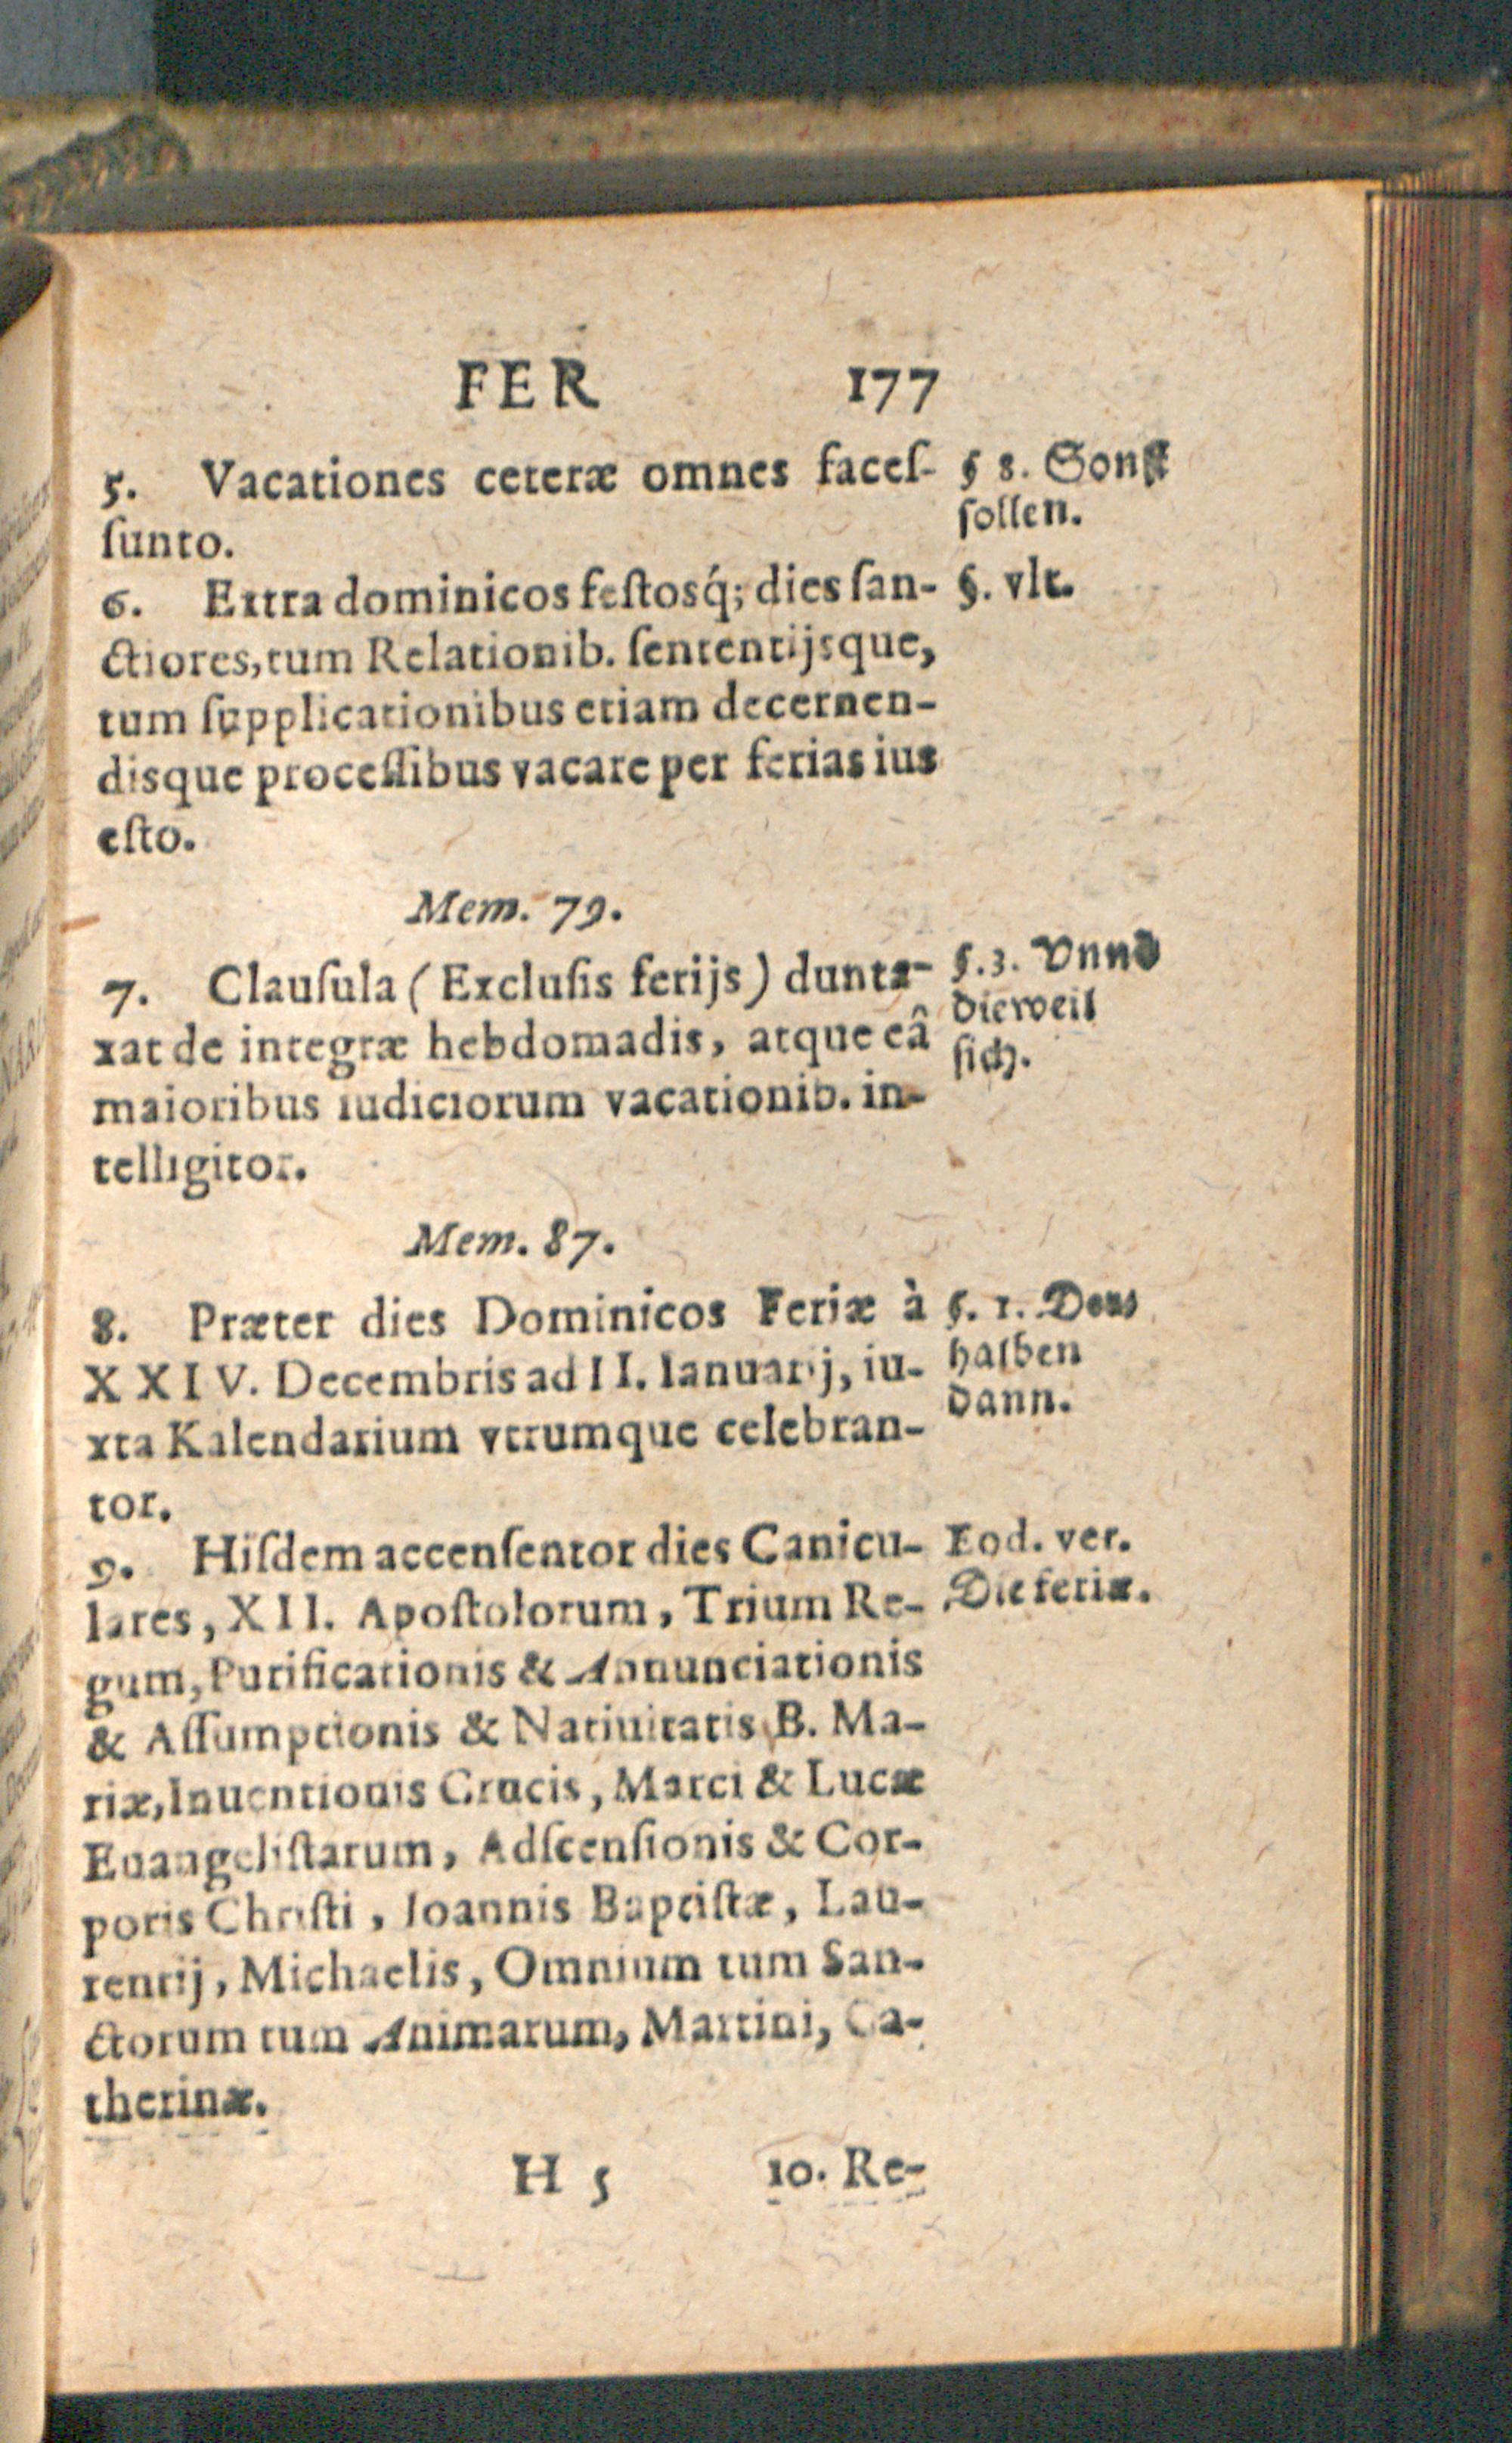 FER 177
5. Vacationes ceteræ omnes faceſ-
ſunto.
§ 8. Sonſt
ſollen.
6. Extra dominicos feſtosq́; dies ſan-
ctiores, tum Relationib. ſententijsque,
tum ſupplicationibus etiam decernen-
disque proceſſibus vacare per ferias ius
eſto.
§. vlt.
Mem. 79.
7. Clauſula (Excluſis ferijs) dunta-
xat de integræ hebdomadis, atque eâ
maioribus iudiciorum vacationib. in-
telligitor.
§. 3. Vnnd
dieweil
ſich.
Mem. 87.
8. Præter dies Dominicos Feriæ à
XXIV. Decembris ad II. Ianuarij, iu-
xta Kalendarium vtrumque celebran-
tor.
§. 1.
halben
dann.
9. Hiſdem accenſentor dies Canicu-
lares, XII. Apoſtolorum, Trium Re-
gum, Purificationis & Annunciationis
& Aſſumptionis & Natiuitatis B. Ma-
riæ, Inuentionis Crucis, Marci & Lucæ
Euangeliſtarum, Adſcenſionis & Cor-
poris Chriſti, Ioannis Baptiſtæ, Lau-
rentij, Michaelis, Omnium tum San-
ctorum tum Animarum, Martini, Ca-
therinæ.
Eod. ver.
Die feriæ.
H 5 10. Re-